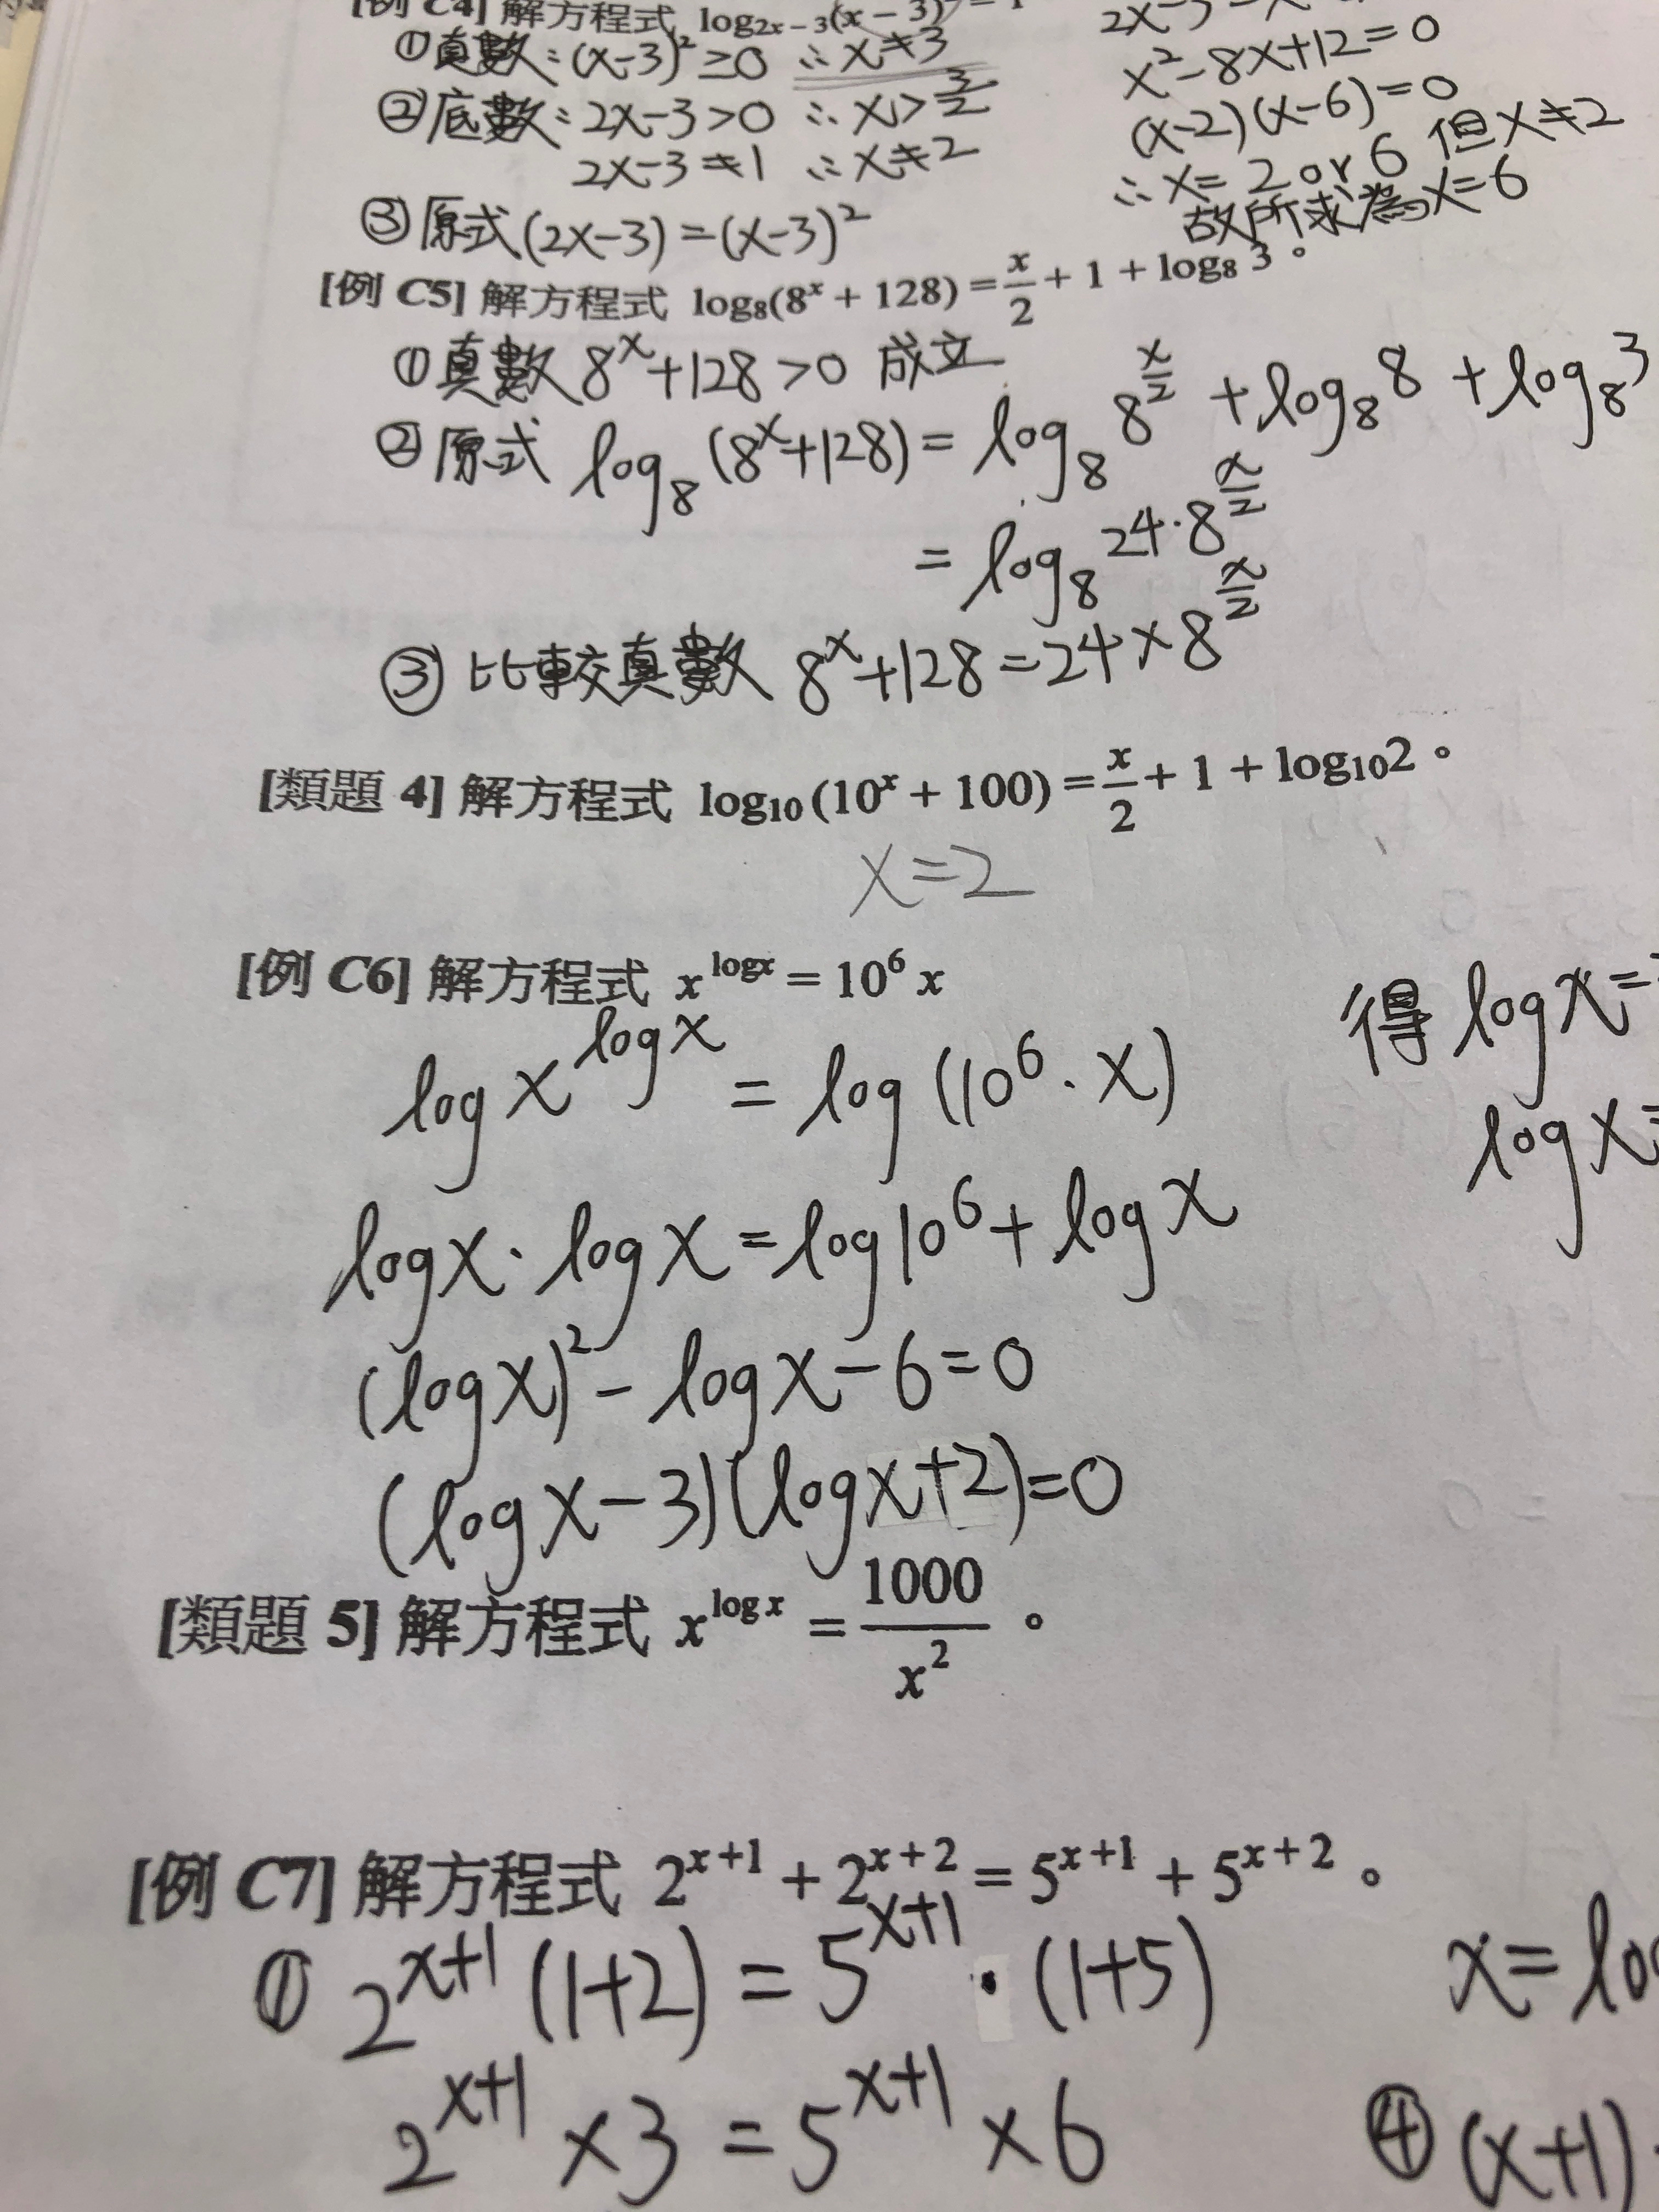 [例 C4] 解方程式 log₂ₓ₋₃(x − 3)
①真數:(x-3)²≥0 ∴x≠3
②底數:2x-3>0 ∴x>3/2
2x-3≠1 ∴x≠2
③原式(2x-3)=(x-3)²
x²-8x+12=0
(x-2)(x-6)=0
∴x=2 or 6 但x≠2
故所求為x=6
[例 C5] 解方程式 log₈(8ˣ + 128) = x/2 + 1 + log₈ 3。
①真數 8ˣ+128>0 成立
②原式 log₈(8ˣ+128) = log₈ 8^(x/2) + log₈ 8 + log₈ 3
= log₈ 24·8^(x/2)
③ 比較真數 8ˣ+128=24×8^(x/2)
[類題 4] 解方程式 log₁₀(10ˣ + 100) = x/2 + 1 + log₁₀2。
x=2
[例 C6] 解方程式 x^(logx) = 10⁶ x
log x^(logx) = log (10⁶·x)
logx·logx=log10⁶+logx
(logx)²-logx-6=0
(logx-3)(logx+2)=0
得 logx=
logx=
[類題 5] 解方程式 x^(log x) = 1000/x²。
[例 C7] 解方程式 2ˣ⁺¹ + 2ˣ⁺² = 5ˣ⁺¹ + 5ˣ⁺²。
① 2ˣ⁺¹(1+2) = 5ˣ⁺¹·(1+5)
2ˣ⁺¹×3 = 5ˣ⁺¹×6
x=lo
④(x+1)